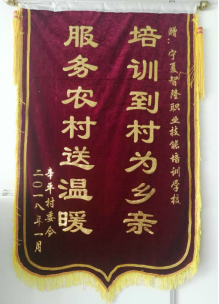 赠：宁夏智隆职业技能培训学校
培训到村为乡亲
服务农村送温暖
辛平村委会
二〇一八年一月